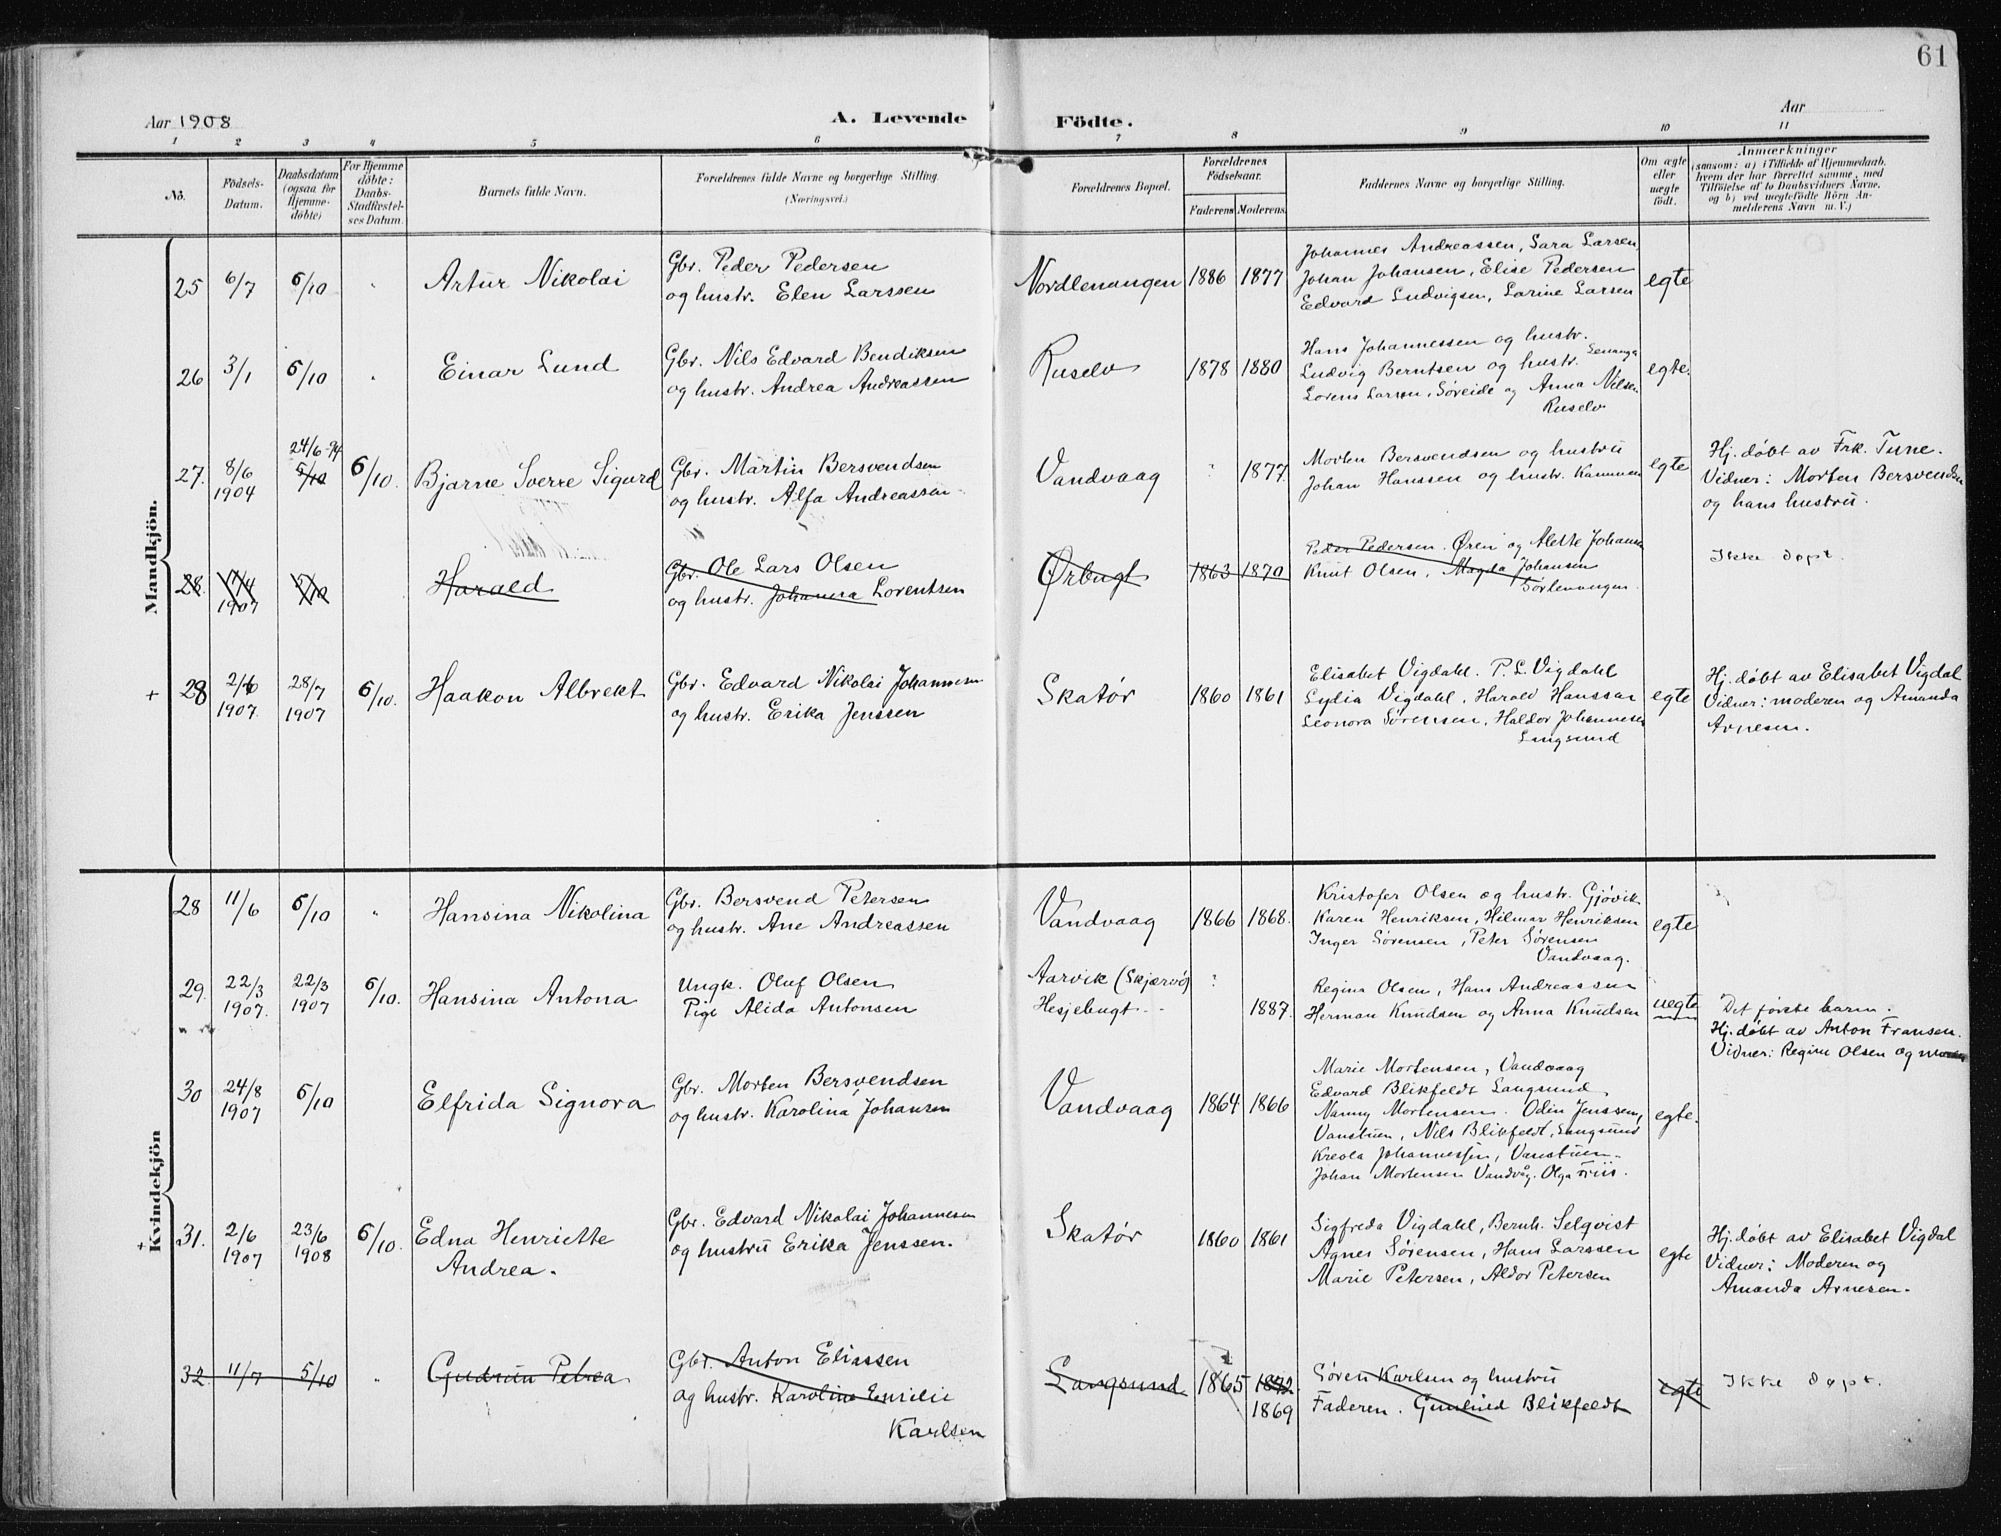 61
Aar 1908
A. Levende
Födte.
Aar
1 2 3 4 5 6 7 8 9 10 11
No.
Födsels-
Datum.
Daabsdatum
(ogsaa for
Hjemme-
döbte)
For Hjemme
döbte:
Daabs-
Stadfæstel-
ses Datum.
Barnets fulde Navn.
Forældrenes fulde Navne og borgerlige Stilling.
(Næringsvei.)
Forældrenes Bopæl.
Forældrenes
Födselsaar.
Faderens Moderens.
Faddernes Navne og borgerlige Stilling.
Om ægte
eller
uægte
födt.
Anmærkninger
(saasom: a) i Tilfælde af Hjemmedaab,
hvem der har forrettet samme, med
Tilföielse af to Daabsvidners Navne.
og b) ved uægtefödte Börn An-
melderens Navn m. V.)
Mandkjön.
25 6/7 5/10 " Artur Nikolai
Gbr. Peder Pedersen
og hustr. Elen Larssen
Nordlenangen 1886 1877
Johannes Andreassen, Sara Larsen
Johan Johansen, Elise Pedersen
Edvard Ludvigsen, Larine Larsen
egte
26 3/1 5/10 " Einar Lund
Gbr. Nils Edvard Bendiksen
og hustr. Andrea Andreassen
Ruselv 1878 1880
Hans Johannessen og hustr.
Ludvig Berntsen og hustr. Lenanga
Lorens Larsen, Søreide og Anna Nilsen
Ruselv
egte.
27. 8/6
1904
24/6-94
5/10
6/10. Bjarne Sverre Sigurd
Gbr. Martin Bersvendsen
og hustr. Alfa Andreassen
Vandvaag " 1877
Morten Bersvendsen og hustru
Johan Hanssen og hustr. Kammen
egte
Hj. døbt av Frk. Tune.
Vidner: Morten Bersvendsen
og hans hustru.
28. 17/4
1907
5/10
Harald
Gbr. Ole Lars Olsen
og hustr. Johanna Lorentsen
Ørbugt 1863 1870
Peder Pedersen. Øren og Alette Johansen
Knut Olsen, Magda Johansen
Sørlenangen
Ikke døpt.
+ 28 2/6
1907.
28/7
1907
6/10. Haakon Albrekt
Gbr. Edvard Nikolai Johannesen
og hustr. Erika Jenssen
Skatør 1860 1861
Elisabet Vigdahl. P. L. Vigdahl
Lydia Vigdahl, Harald Hanssen
Leonora Sørensen, Haldor Johannesen
Langsund
egte
Hj. døbt av Elisabet Vigdal
Vidner: moderen og Amanda
Arnesen.
Kvindekjön
28 11/6 5/10 " Hansina Nikolina
Gbr. Bersvend Petersen
og hustr. Ane Andreassen
Vandvaag 1866 1868.
Kristofer Olsen og hustr. Gjøvik
Karen Henriksen, Hilmar Henriksen
Inger Sørensen, Peter Sørensen
Vandvaag.
egte
29. 22/3
1907.
22/3
1907
6/10. Hansina Antona
Ungk. Oluf Olsen
Pige Alida Antonsen
Aarvik (Skjærvø) ?
Hesjebugt.- 1887.
Regina Olsen, Hans Andreassen
Herman Knudsen og Anna Knudsen
uegte
Det første barn.
Hj. døbt av Anton Fransen.
Vidner: Regine Olsen og
30 24/8
1907
5/10
Elfrida Signora
Gbr. Morten Bersvendsen
og hustr. Karolina Johansen
Vandvaag 1864 1866
Marie Mortensen, Vandvaag
Edvard Blikfeldt Langsund
Nanny Mortensen. Odin Jenssen,
Vanstuen, Nils Blikfeldt, Langsund
Kreola Johannessen, Vanstuen.
Johan Mortensen Vandvåg. Olga Friis.
egte.
+ 31. 2/6
1907
23/6
1908
6/10. Edna Henriette
Andrea.
Gbr. Edvard Nikolai Johannesen
og hustru Erika Jenssen.
Skatør 1860 1861
Sigfreda Vigdahl, Bernh. Selqvist
Agnes Sørensen, Hans Larssen
Marie Petersen, Aldor Petersen
egte
Hj. døbt av Elisabet Vigdal
Vidner: Moderen og
Amanda Arnesen.
32. 11/7 5/10 " Gudrun Petrea
Gbr. Anton Eliassen
og hustr. Karoline Emilie
Karlsen
Langsund 1865 1872.
1869
Søren Karlsen og hustru
Faderen. Gunhild Blikfeldt
egte
Ikke døpt.